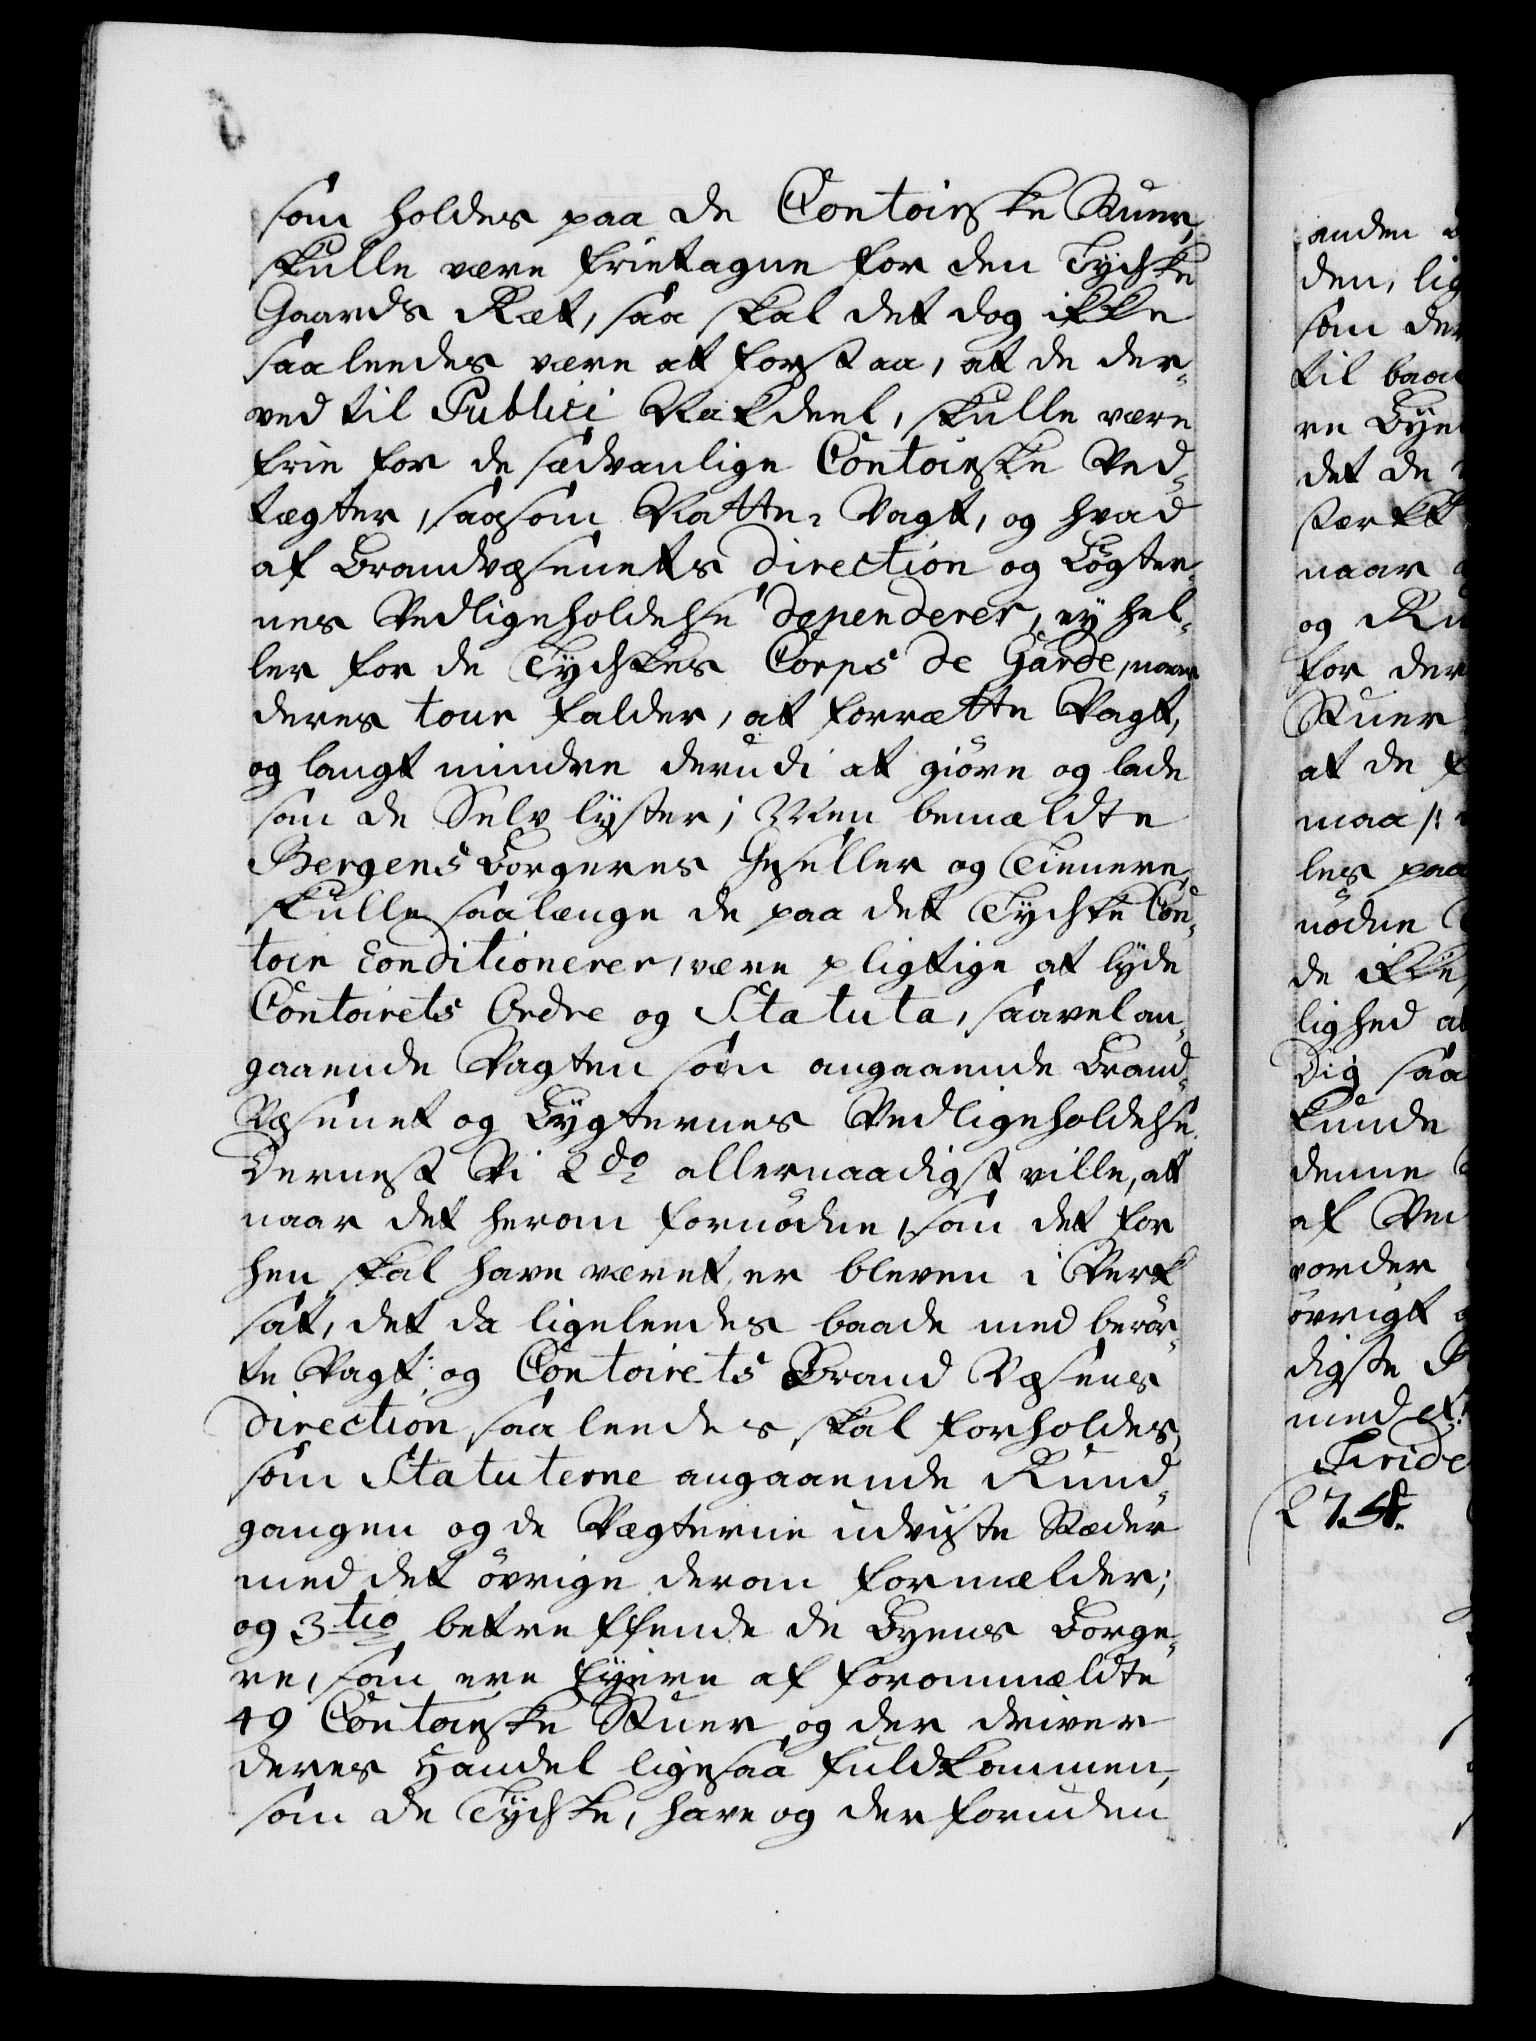 som holdes paa de Contoirske Stuer,
skulle være frietagne for den Tydske
Gaards Ret, saa skal det dog ikke
saaleedes være at forstaa, at de der-
ved til Publici Bakdeel, skulle være
frie for de sædvanlige Contoirske Ved-
tægter, saasom Natte-Vagt, og hvad
af Brandvæsenets direction og Løgter-
nes Vedligeholdelse dependerer, ey hel-
ler for de Tydskes Corps de Garde, naar
deres tour falder, at forrætte Vagt,
og langt mindre derudi at giöre og lade
som de Selv lyster; Men bemældte
Bergens Borgeres Geseller og Tienere,
skulle saalænge de paa det Tydske Con-
toir Conditionerer, være pligtige at lyde
Contoirets Ordre og Statuta, saavel an-
gaaende Vagten som angaaende Brand-
Væsenet og Lygternes Vedligeholdelse.
Dernest Vi 2do allernaadigst ville, at
naar det herom fornödne, som det for
hen skal have været, er bleven i Verk
sat, det da ligeleedes baade med berör-
te Vagt: og Contoirets Brand Væsens
direction saaleedes skal forholdes,
som Statuterne angaaende Rund-
gangen og de Vægterne udviste Stæder
med det övrige derom formælder;
og 3tio betreffende de Byens Borge-
re, som ere Eyere af forommældte
49 Contoirske Stuer, og der driver
deres Handel ligesaa fuldkommen,
som de Tydske, have og der foruden
anden
den, lig
som der
til baa
re Bye
det de
stærkt
naar
og Ru
for der
Stuer
at de
maa /:
les paa
nödne
de ikke
lighed
Dig saa
kunde
denne
af Ved
vorder
övrigt
digste
med
Fride
27